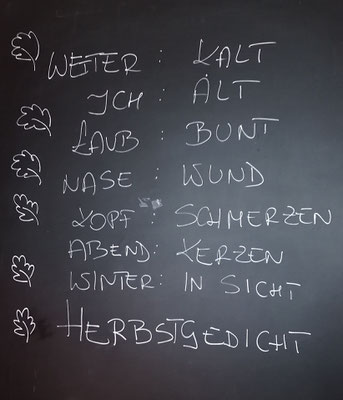 WETTER: KALT
ICH: ALT
LAUB: BUNT
NASE: WUND
KOPF: SCHMERZEN
ABEND: KERZEN
WINTER: IN SICHT
HERBSTGEDICHT